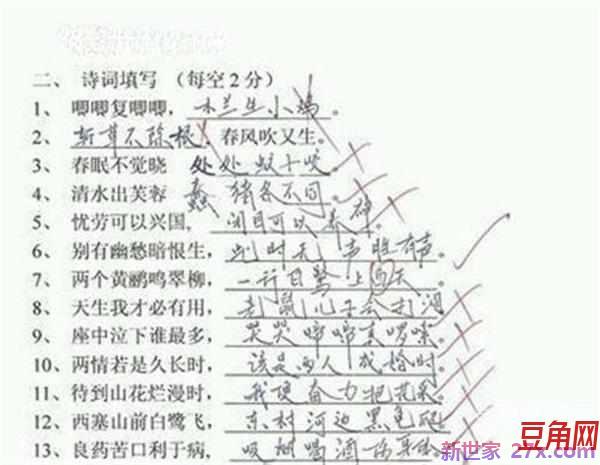 二、诗词填写 （每空2分）
1、唧唧复唧唧，木兰生小鸡。
2、斩草不除根，春风吹又生。
3、春眠不觉晓 处处蚊子咬。
4、清水出芙蓉 蠢猪各不同。
5、忧劳可以兴国，闭目可以养神。
6、别有幽愁暗恨生，此时无声胜有声。
7、两个黄鹂鸣翠柳，一行白鹭上西天。
8、天生我才必有用，老鼠儿子会打洞
9、座中泣下谁最多，哭哭啼啼真啰嗦。
10、两情若是久长时，该是两人成婚时。
11、待到山花烂漫时，我便奋力把花采。
12、西塞山前白鹭飞，东村河边黑龟
13、良药苦口利于病，吸烟喝酒伤身体
豆角网
新世家 27x.com